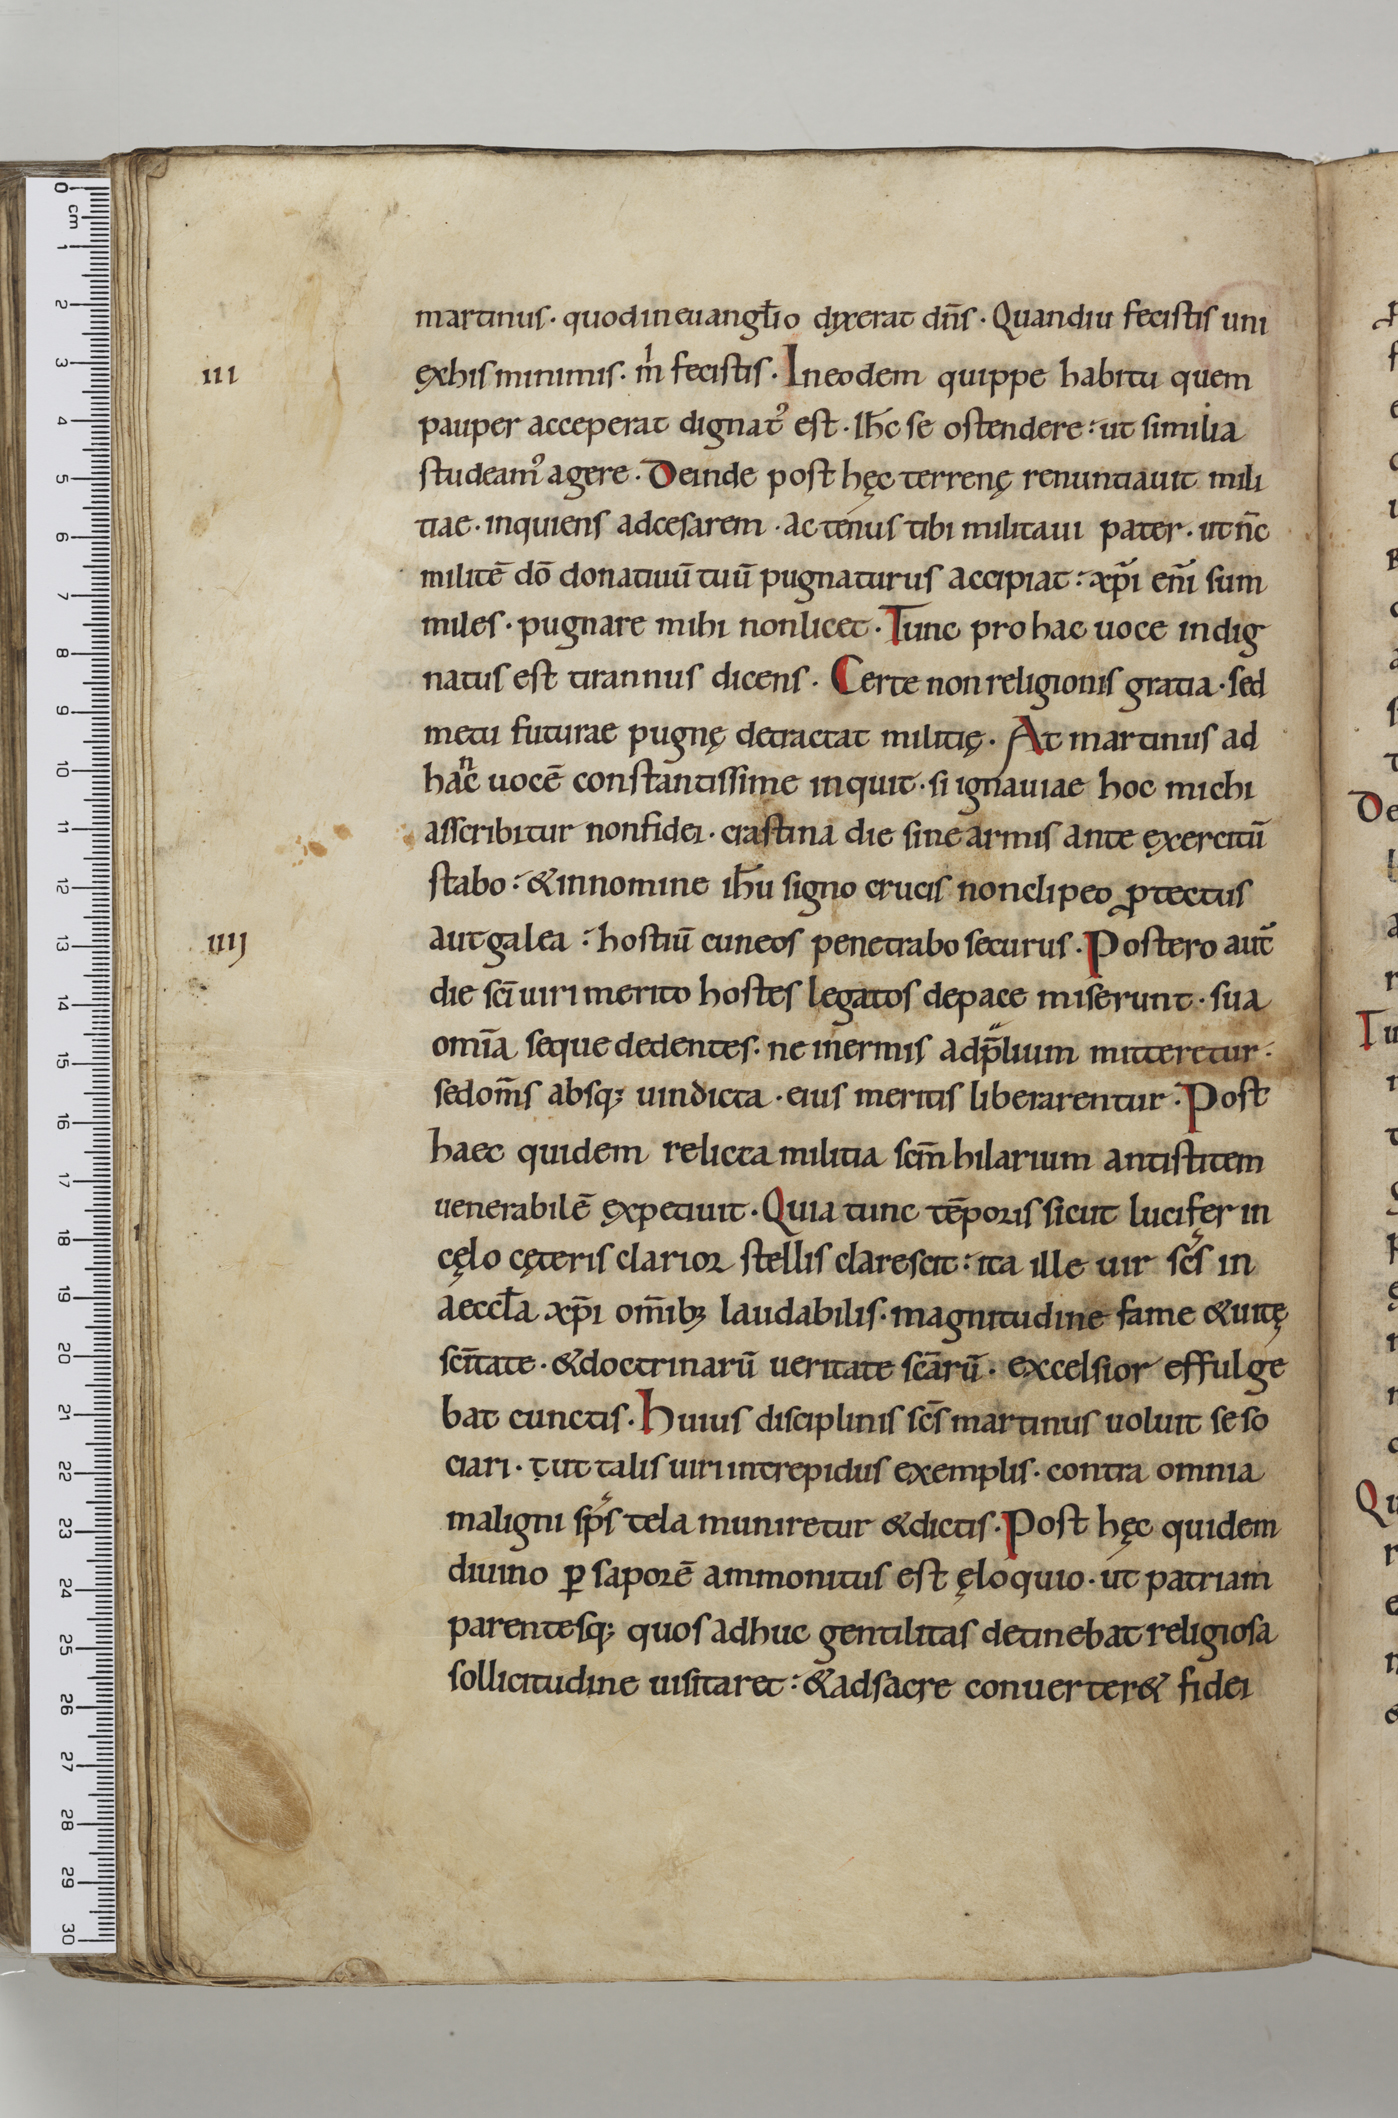 martinus · quod in euangl̄io dyxerat dn̄s · Quandiu fecistis uni
III
ęx his minimis · m̍ fecistis · In eodem quippe habitu quem
pauper acceperat dignat᾽ est · Ih̄c se ostendere : ut similia
studeam᾽ agere · Deinde post hęc terrenę renuntiauit mili
tiae · inquiens ad cesarem · ac tenus tibi militaui pater · ut nc̄
militē dō donatiuū tuū pugnaturus accipiat : xp̄i eni̅ sum
miles · pugnare mihi non licet · Tunc pro hac uoce indig
natus est tirannus dicens · Certe non religionis gratia · sed
metu futurae pugnę detractat militię · At martinus ad
hanc uocē constantissime inquit · si ignauiae hoc michi
asscribitur non fidei · crastina die sine armis ante ęxercitū
stabo : & in nomine ih̄u signo crucis non clipeo ꝓtectus
IIIJ
aut galea : hostiū cuneos penetrabo securus · Postero aut̄
die sc̄i uiri merito hostes legatos de pace miserunt · sua
omīa seque dedentes · ne inermis ad p̄lium mitteretur ·
sed om̄s absq; uindicta · eius meritis liberarentur · Post
haec quidem relicta militia scm̄ hilarium antistitem
uenerabilē ęxpetiuit · Quia tunc tēporis sicut lucifer in
cęlo cęteris clarior stellis clarescit : ita ille uir sc̄s in
aeccl̄a xp̄i om̄ib; laudabilis · magnitudine fame & uitę
sci̅tate · & doctrinarū ueritate scārū · excelsior effulge
bat cunctis · Huius disciplinis sc̄s martinus uoluit se so
ciari · ut talis uiri intrepidus exemplis · contra omnia
maligni sp̄s tela muniretur & dictis · Post hęc quidem
diuino ꝑ saporē ammonitus est ęloquio · ut patriam
parentesq; quos adhuc gentilitas detinebat religiosa
sollicitudine uisitaret : & ad sacre conuerter& fidei
0 cm 1 2 3 4 5 6 7 8 9 10 11 12 13 14 15 16 17 18 19 20 21 22 23 24 25 26 27 28 29 30